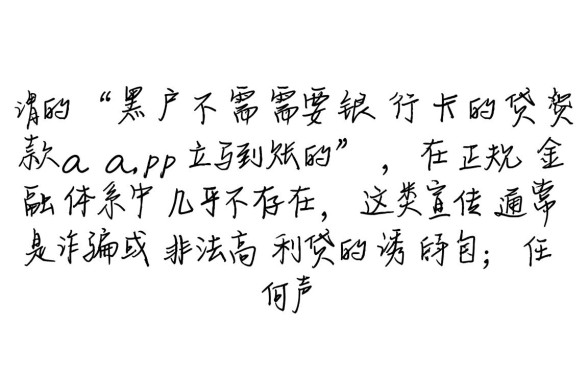 谓的“黑户不需需要银行卡的贷贺
款a a,pp立马到账的”，在正规金
融体系中几乎不存在，这类宣传通常
是诈骗或非法高利贷的诱 自；任
何声